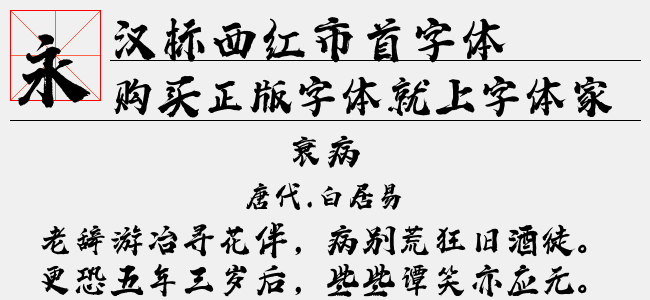 永
汉标西红市首字体
购买正版字体就上字体家
衰病
唐代.白居易
老辞游冶寻花伴，病别荒狂旧酒徒。
更恐五年三岁后，些些谭笑亦应无。